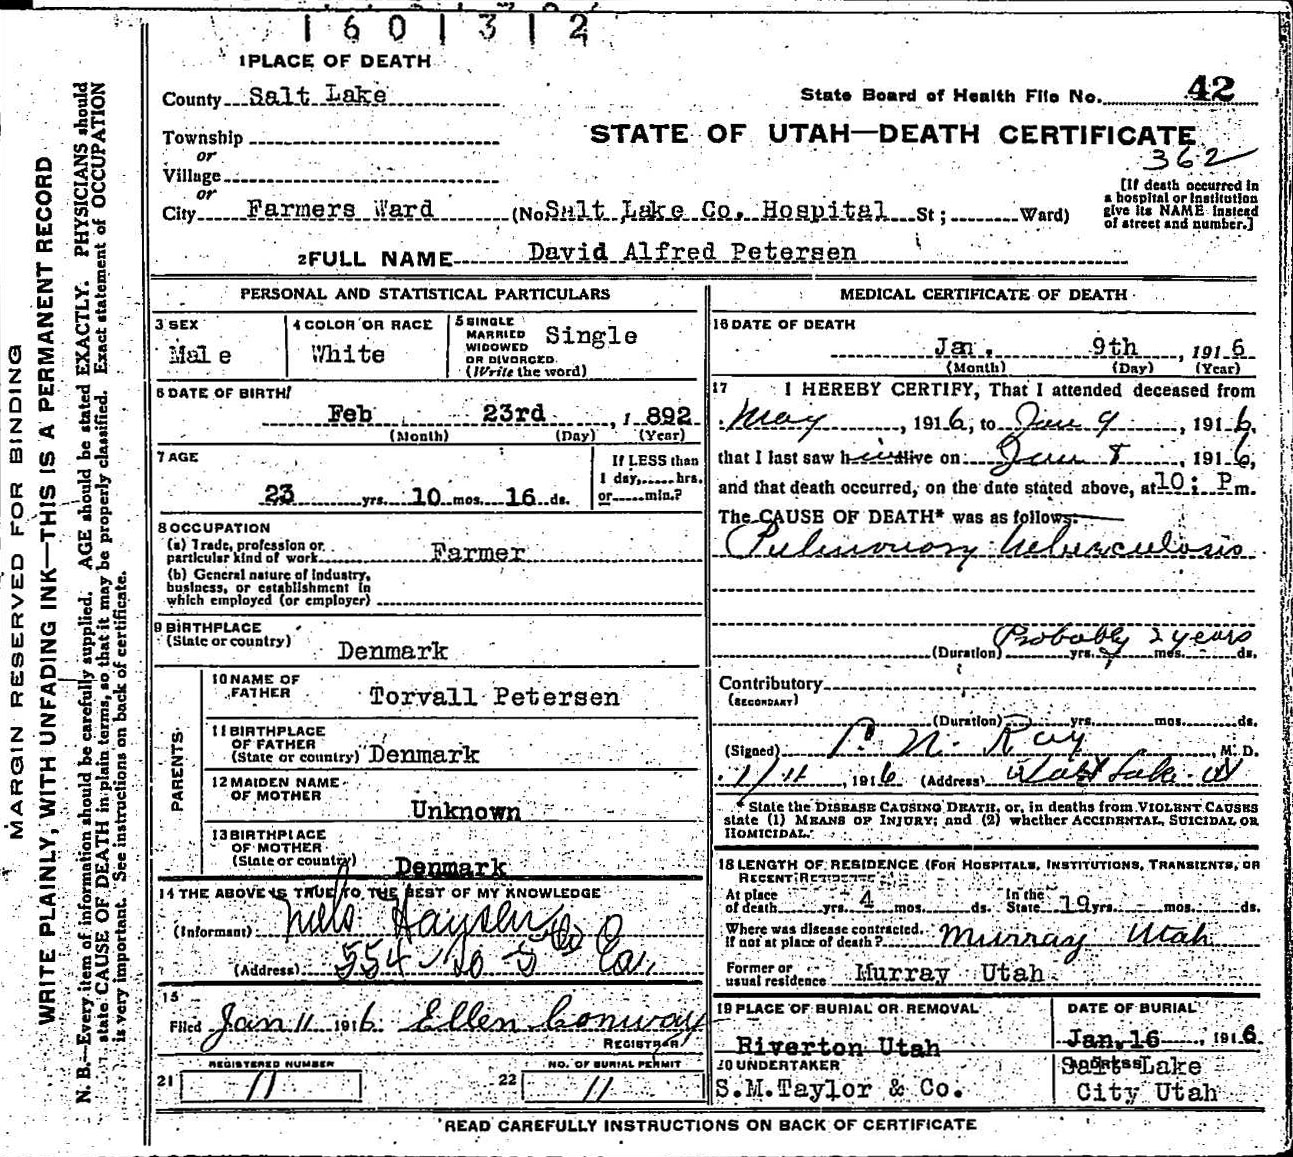 1601312
1 PLACE OF DEATH
County Salt Lake
State Board of Health File No. 42
Township
or
STATE OF UTAH—DEATH CERTIFICATE
362
Village
or
City Farmers Ward (No Salt Lake Co. Hospital St; Ward)
[If death occurred in
a hospital or institution
give its NAME instead
of street and number.]
2 FULL NAME David Alfred Petersen
PERSONAL AND STATISTICAL PARTICULARS
3 SEX
Male
4 COLOR OR RACE
White
5 SINGLE
MARRIED
WIDOWED
OR DIVORCED
(Write the word)
Single
6 DATE OF BIRTH
Feb 23rd, 1892
(Month) (Day) (Year)
7 AGE
23 yrs. 10 mos. 16 ds.
If LESS than
1 day, hrs.
or min.?
8 OCCUPATION
(a) Trade, profession or
particular kind of work Farmer
(b) General nature of industry,
business, or establishment in
which employed (or employer)
9 BIRTHPLACE
(State or country)
Denmark
PARENTS
10 NAME OF
FATHER
Torvall Petersen
11 BIRTHPLACE
OF FATHER
(State or country) Denmark
12 MAIDEN NAME
OF MOTHER
Unknown
13 BIRTHPLACE
OF MOTHER
(State or country)
Denmark
14 THE ABOVE IS TRUE TO THE BEST OF MY KNOWLEDGE
(Informant) Niels
(Address) 554
15
Filed Jan 11 1916 Ellen Conway
REGISTRAR
REGISTERED NUMBER
21 11
NO. OF BURIAL PERMIT
22 11
MEDICAL CERTIFICATE OF DEATH
16 DATE OF DEATH
Jan. 9th, 1916
(Month) (Day) (Year)
17 I HEREBY CERTIFY, That I attended deceased from
May, 1916, to Jan 9, 1916,
that I last saw him alive on Jan 8, 1916,
and that death occurred, on the date stated above, at 10: P m.
The CAUSE OF DEATH* was as follows:
Pulmonary tuberculosis
Probably 2 years
(Duration) yrs. mos. ds.
Contributory
(SECONDARY)
(Duration) yrs. mos. ds.
(Signed) N. Ray, M. D.
1/11, 1916 (Address) Salt Lake
* State the DISEASE CAUSING DEATH, or, in deaths from VIOLENT CAUSES
state (1) MEANS OF INJURY; and (2) whether ACCIDENTAL, SUICIDAL OR
HOMICIDAL.
18 LENGTH OF RESIDENCE (FOR HOSPITALS, INSTITUTIONS, TRANSIENTS, OR
RECENT RESIDENTS
At place
of death yrs. 4 mos. ds. In the
State 19 yrs. mos. ds.
Where was disease contracted.
If not at place of death? Murray Utah
Former or
usual residence Murray Utah
19 PLACE OF BURIAL OR REMOVAL
Riverton Utah
DATE OF BURIAL
Jan. 16, 1916
20 UNDERTAKER
S.M. Taylor & Co.
ADDRESS
Salt Lake
City Utah
READ CAREFULLY INSTRUCTIONS ON BACK OF CERTIFICATE
MARGIN RESERVED FOR BINDING
WRITE PLAINLY, WITH UNFADING INK—THIS IS A PERMANENT RECORD
N. B.—Every item of information should be carefully supplied. AGE should be stated EXACTLY. PHYSICIANS should
state CAUSE OF DEATH in plain terms, so that it may be properly classified. Exact statement of OCCUPATION
is very important. See instructions on back of certificate.